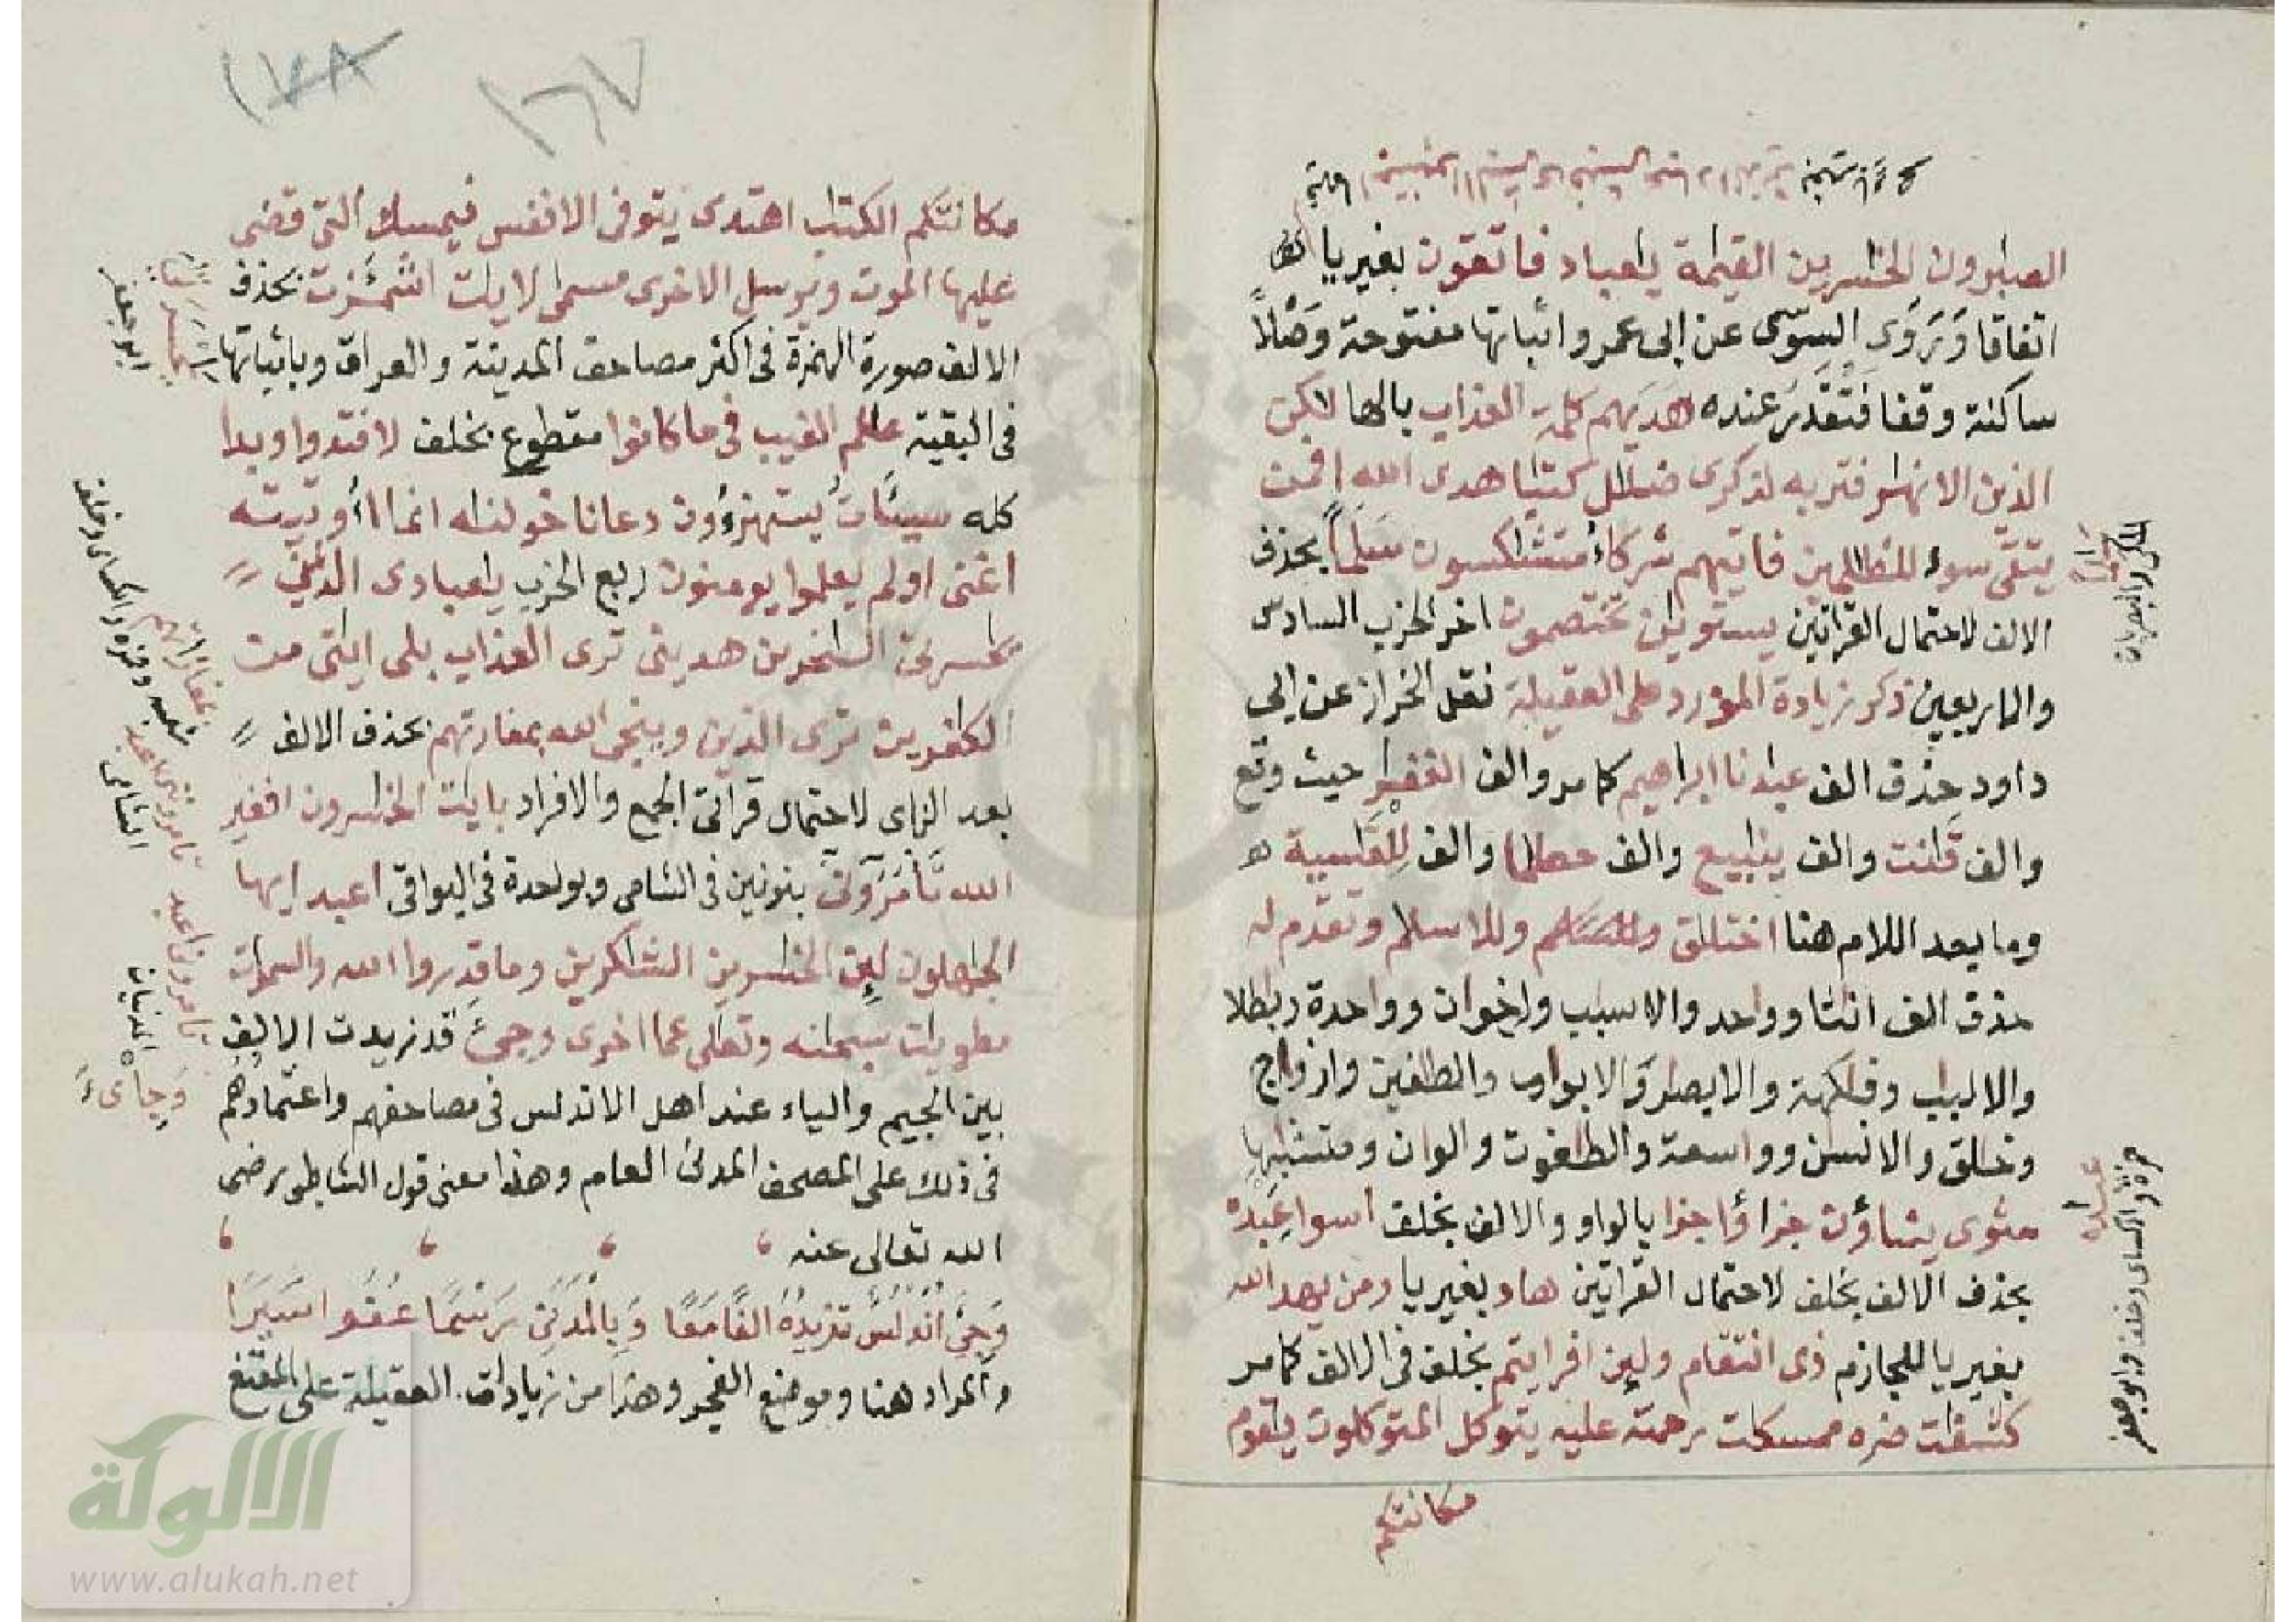 الصبرون الخسرين القيمة يعباد فاتقون بغير يا
اتفاقا وتروى السوسى عن ابى عمرو اثباتها مفتوحة وصلاً
ساكنة وقفا فتقدر عنده هديهم كلمة العذاب بالها لكن
الذين الانهر فتريه لذكرى ضلل كتبا هدى الله افمن
يتقى سوء للظلمين فاتيهم شركاء متشكسون سلما بحذف
الالف لاحتمال القراتين يستوين تختصمون اخر الحزب السادس
والاربعين ذكر زيادة المورد على العقيلة نقل الخراز عن ابى
داود حذف الف عبدنا ابراهيم كامر والف الغفر حيث وقع
والف قنت والف ينبيع والف حطما والف للقسية هو
وما بعد اللام هنا اختلق والسلم وللاسلم وتقدم له
حذف الف انثا وواحد والاسبب واخوان وواحدة وبطلا
والالبب وفكهة والابصر والابواب والطغين وازواج
وخلق والانسن وواسعة والطغوت والوان ومتشبها
مثوى يشاؤن جزاؤا جزا بالواو والالف بخلف اسوا عبده
بحذف الالف بخلف لاحتمال القراتين هاد بغير يا ومن يهد الله
بغير يا للجازم ذى انتقام ولين افرايتم بخلف فى الالف كامر
كشفت ضره ممسكت رحمته عليه يتوكل المتوكلون يقوم
مكانتكم
حمزة والكساى وخلف وابو جعفر
عبده
مكانتكم الكتب اهتدى يتوفى الانفس فيمسك التى قضى
عليها الموت ويرسل الاخرى مسمى لايت اشمئزت بحذف
الالف صورة الهمزة فى اكثر مصاحف المدينة والعراق وباثباتها
فى البقية علم الغيب فى ما كانوا مقطوع بخلف لافتدوا وبدا
كله سيئات يستهزءون دعانا خولنه انما اوتيته
اغنى اولم يعلموا يومنون ربع الحزب يعبادى الذين
يحسرتى السخرين هدينى ترى العذاب بلى ايتى من
الكفرين ترى الذين وينجى الله بمفازتهم بحذف الالف
بعد الزاى لاحتمال قراتى الجمع والافراد بايت الخسرون افغير
الله تامرونى بنونين فى الشامى وبواحدة فى البواقى اعبد ايها
الجهلون لين الخسرين الشكرين وما قدروا الله والسموات
مطويت سبحنه وتعلى عما اخرى وجىء قد زيدت الالف
بين الجيم والياء عند اهل الاندلس فى مصاحفهم واعتمادهم
فى ذلك على المصحف المدنى العام وهذا معنى قول الشاطبى رضى
الله تعالى عنه
وجئ اندلس تزيده الفا معا وبالمدنى رسما عنوا سيرا
والمراد هنا وموضع الفجر وهذا من زيادات العقيلة على المقنع
ابو جعفر
شعبة وحمزة والكساى وخلف
الشامى
المدنيان
وجاىء
١٦٧
١٧٨
الألوكة
www.alukah.net